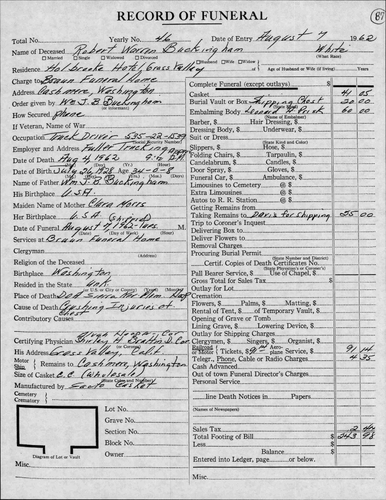 RECORD OF FUNERAL
87
Total No. Yearly No. 46 Date of Entry August 7 1962
Name of Deceased Robert Warren Buckingham White
(What Race)
Married Single Widowed Divorced Husband Wife Widow
Residence Holbrooke Hotel, Grass Valley Age of Husband or Wife (if living) Years
Charge to Braun Funeral Home
Address Cashmere, Washington
Order given by Wm J. B. Buckingham
How Secured phone
If Veteran, Name of War
Occupation Truck Driver 535-22-1539
Employer and Address Fuller Trucking
Date of Death Aug 4, 1962
Date of Birth July 26, 1928 34-0-8
Name of Father Wm J. B. Buckingham
His Birthplace U.S.A.
Maiden Name of Mother Clara Harris
Her Birthplace U.S.A.
Date of Funeral August 7, 1962
Services at Braun Funeral Home
Clergyman
(Address)
Religion of the Deceased
Birthplace Washington
Resided in the State
Place of Death DOA Sierra Nev Mem Hosp
Cause of Death Crushing Injuries of Chest
Contributory Causes
Certifying Physician
His Address Grass Valley, Calif.
Remains to Cashmere, Washington
Size of Casket (Wholesale)
Manufactured by Casket
Cemetery
Crematory
Lot No.
Grave No.
Section No.
Block No.
Owner
Diagram of Lot or Vault
Misc.
Complete Funeral (except outlays) $
Casket 41 05
Burial Vault or Box Shipping Chest 20 00
Embalming Body 60 00
(Name of Embalmer)
Barber, $ Hair Dressing, $
Dressing Body, $ Underwear, $
Suit or Dress
(State Kind and Color)
Slippers, $ Hose, $
Folding Chairs, $ Tarpaulin, $
Candelabrum, $ Candles, $
Door Spray, $ Gloves, $
Funeral Car, $ Ambulance, $
Limousines to Cemetery @ $
Extra Limousines @ $
Autos to R. R. Station @ $
Getting Remains from
Taking Remains to for shipping 25 00
Trip to Coroner's Inquest
Delivering Box to
Deliver Flowers to
Removal Charges
Procuring Burial Permit
(State Number and District)
Certif. Copies of Death Certificates No.
(State Physician's or Coroner's)
Pall Bearer Service, $ Use of Chapel, $
Gross Total for Sales Tax $
Outlay for Lot
Cremation
Flowers, $ Palms, $ Matting, $
Rental of Tent, $ of Temporary Vault, $
Opening of Grave or Tomb
Lining Grave, $ Lowering Device, $
Outlay for Shipping Charges
Clergymen, $ Singers, $ Organist, $
Railroad or Motor Tickets, $ Aeroplane Service, $ 91 14
Telegr., Phone, Cable or Radio Charges 4 35
Cash Advanced
Out of town Funeral Director's Charges
Personal Service
line Death Notices in Papers
(Names of Newspapers)
Sales Tax 2 44
Total Footing of Bill $ 243 98
Less $
Balance $
Entered into Ledger, page or below.
Misc.